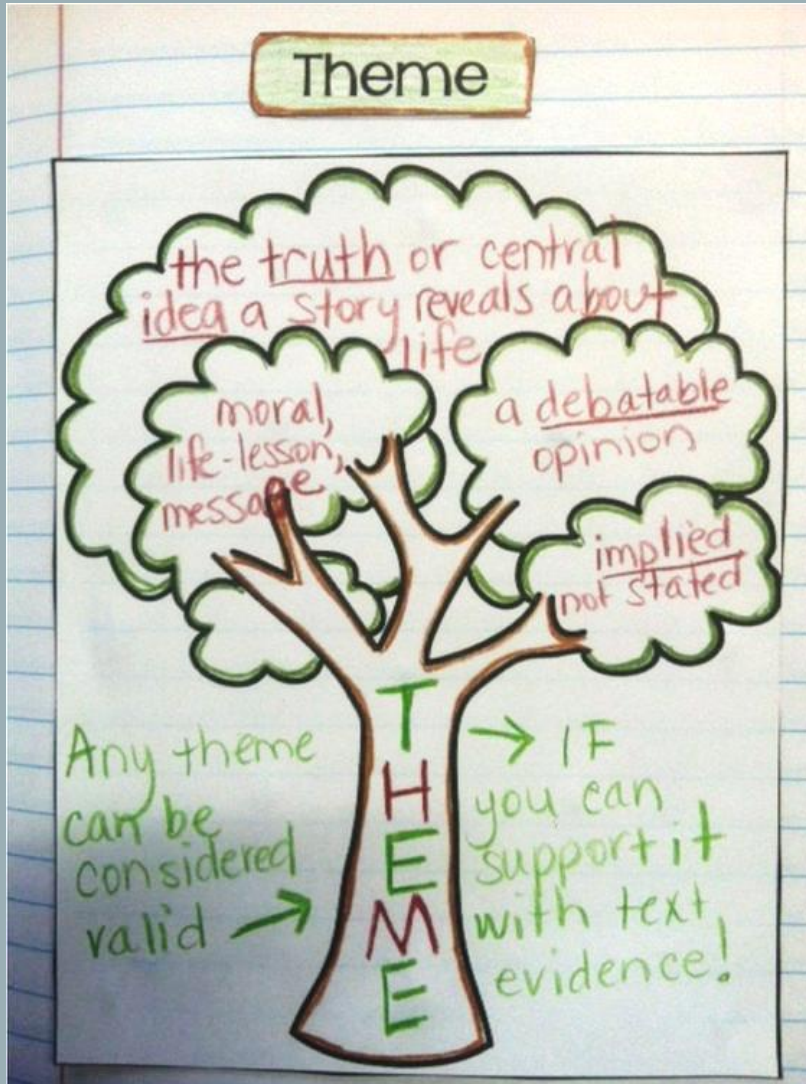 Theme
the truth or central
idea a story reveals about
life
moral,
life-lesson,
message
a debatable
opinion
implied
not stated
THEME
Any theme
can be
considered
valid →
→ IF
you can
support it
with text
evidence!